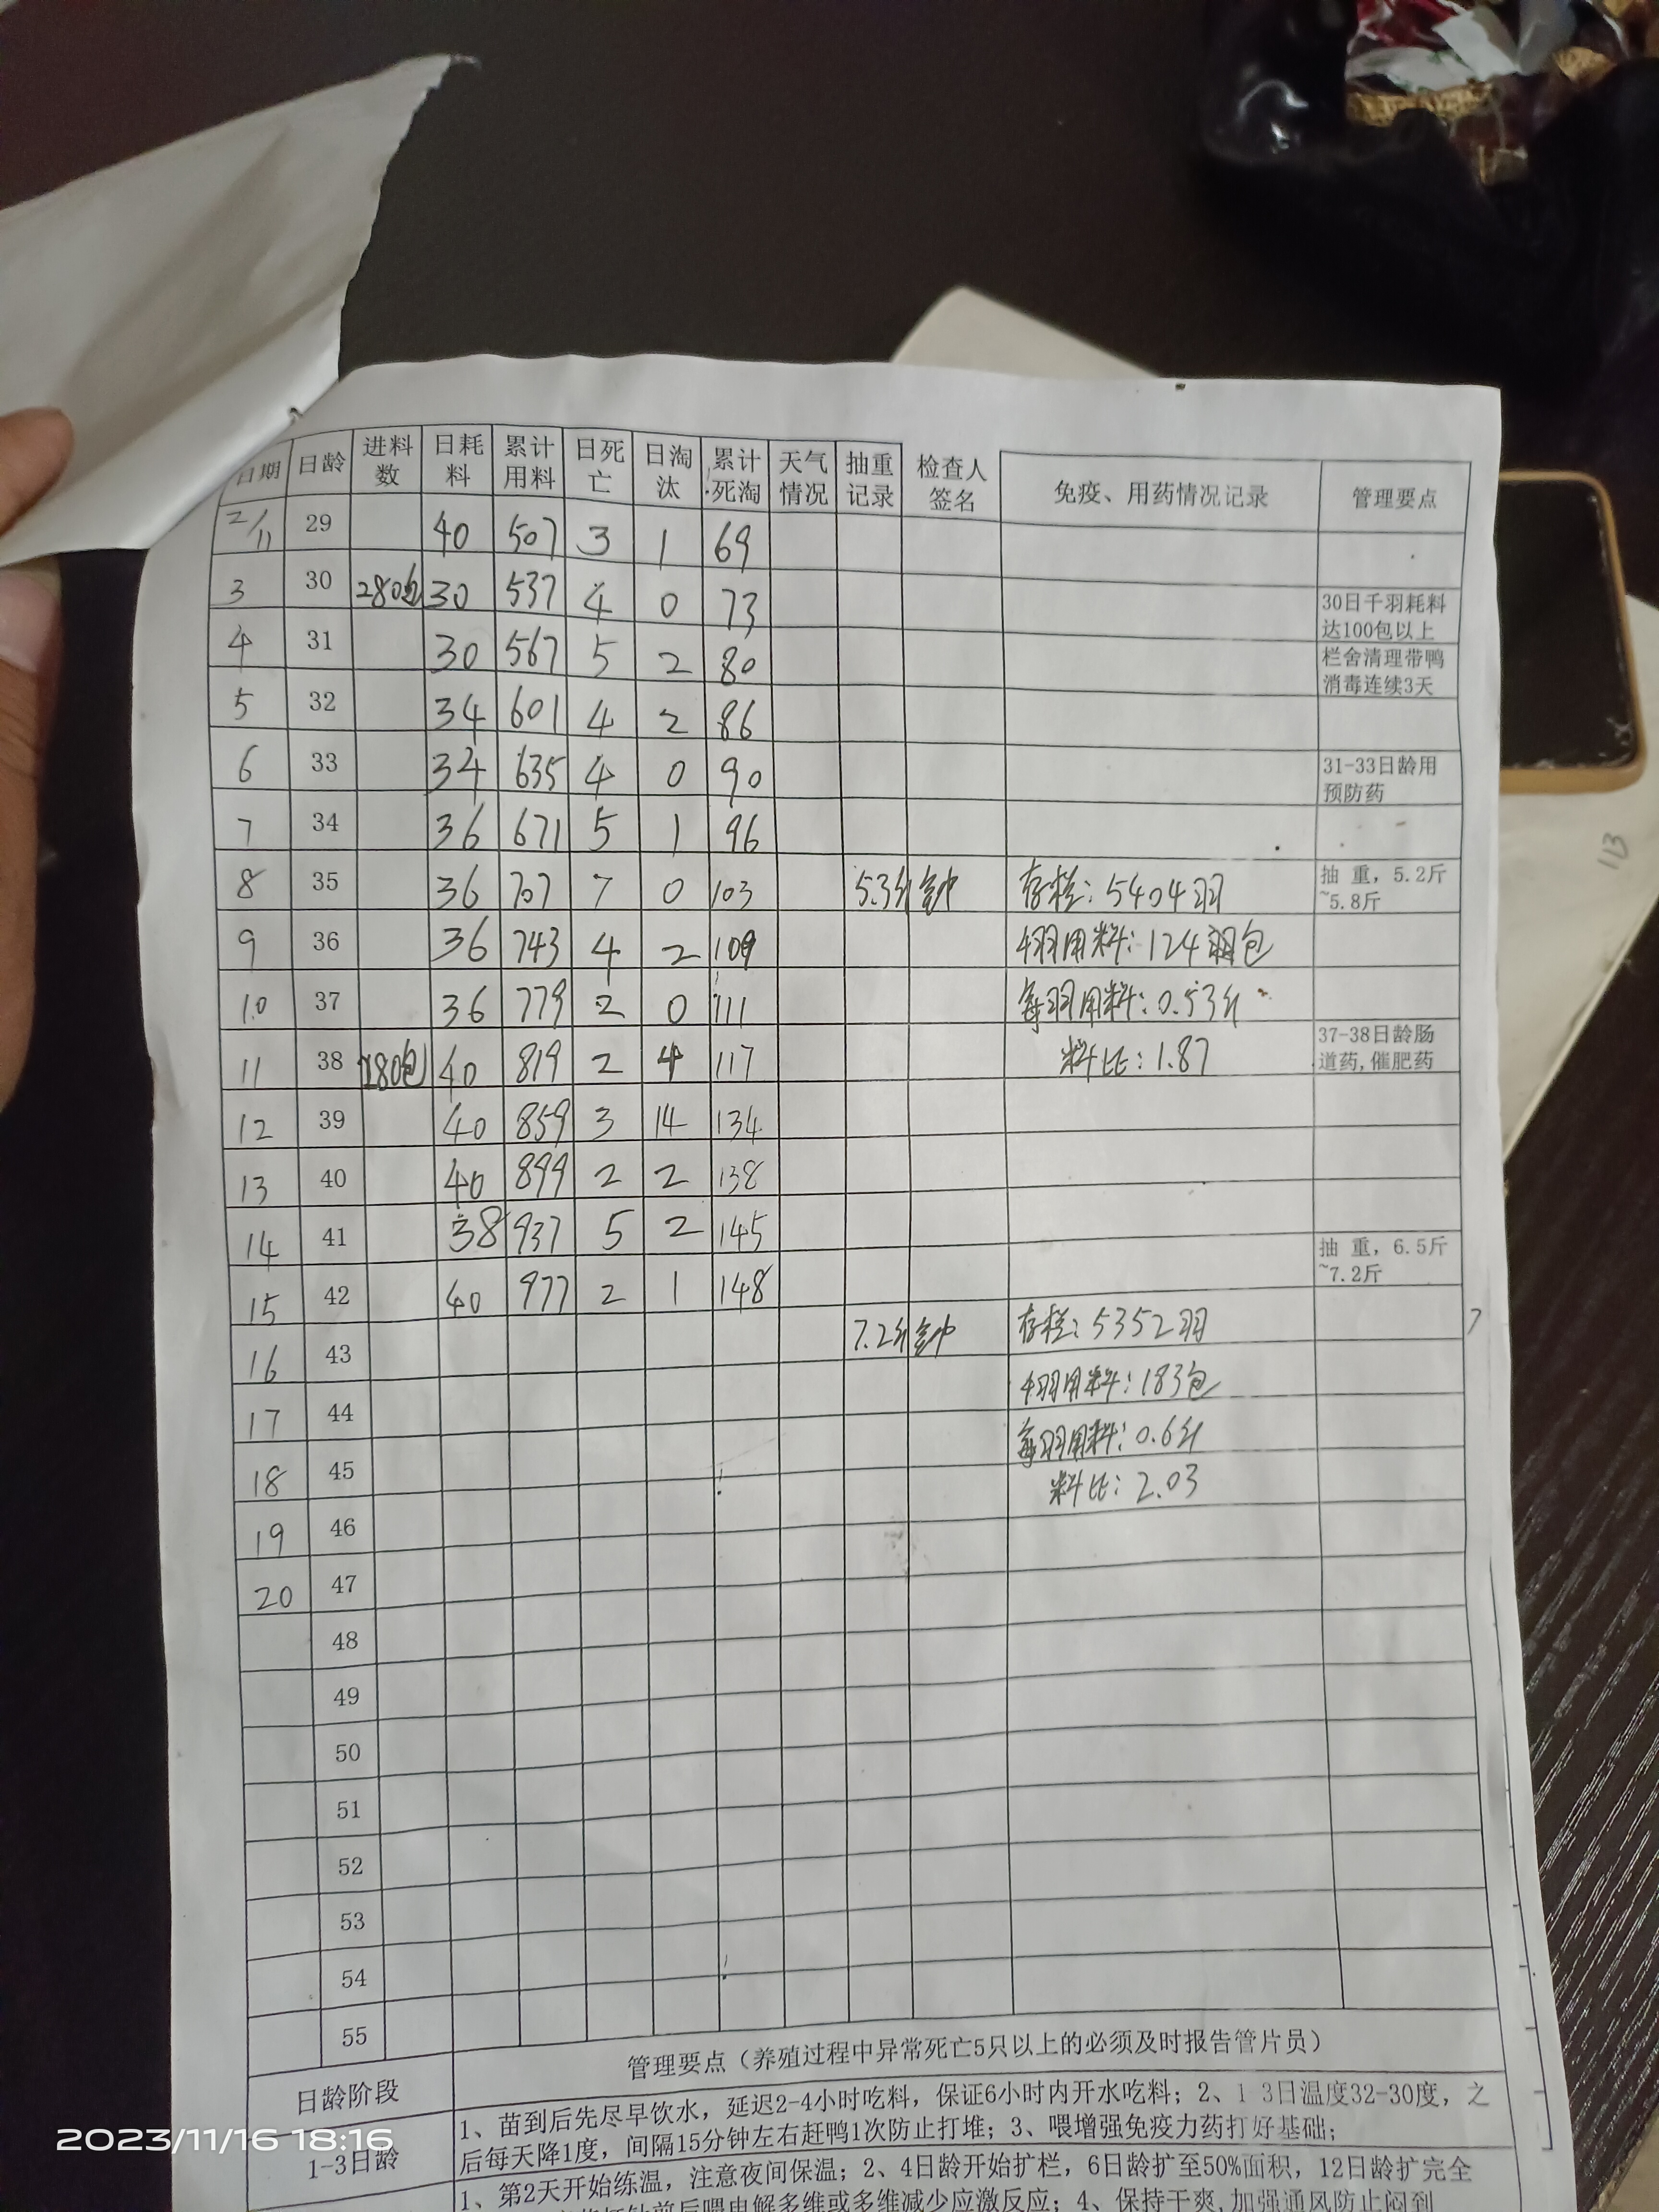 日期 日龄 进料数 日耗料 累计用料 日死亡 日淘汰 累计死淘 天气情况 抽重记录 检查人签名 免疫、用药情况记录 管理要点
2/11 29 40 507 3 1 69
3 30 280包 30 537 4 0 73 30日千羽耗料达100包以上
4 31 30 567 5 2 80 栏舍清理带鸭消毒连续3天
5 32 34 601 4 2 86
6 33 34 635 4 0 90 31-33日龄用预防药
7 34 36 671 5 1 96
8 35 36 707 7 0 103 5.3斤 存栏:5404羽 抽 重，5.2斤~5.8斤
9 36 36 743 4 2 109 千羽用料:124包
10 37 36 779 2 0 111 每羽用料:0.53斤
11 38 280包 40 819 2 4 117 料比:1.87 37-38日龄肠道药,催肥药
12 39 40 859 3 14 134
13 40 40 899 2 2 138
14 41 38 937 5 2 145 抽 重，6.5斤~7.2斤
15 42 40 977 2 1 148
16 43 7.2斤 存栏:5352羽
17 44 千羽用料:183包
18 45 每羽用料:0.6斤
料比:2.03
19 46
20 47
48
49
50
51
52
53
54
55
管理要点（养殖过程中异常死亡5只以上的必须及时报告管片员）
日龄阶段
1-3日龄
1、苗到后先尽早饮水，延迟2-4小时吃料，保证6小时内开水吃料；2、1-3日温度32-30度，之
后每天降1度，间隔15分钟左右赶鸭1次防止打堆；3、喂增强免疫力药打好基础；
1、第2天开始练温，注意夜间保温；2、4日龄开始扩栏，6日龄扩至50%面积，12日龄扩完全
前后喂电解多维或多维减少应激反应；4、保持干爽,加强通风防止闷到
113
2023/11/16 18:16